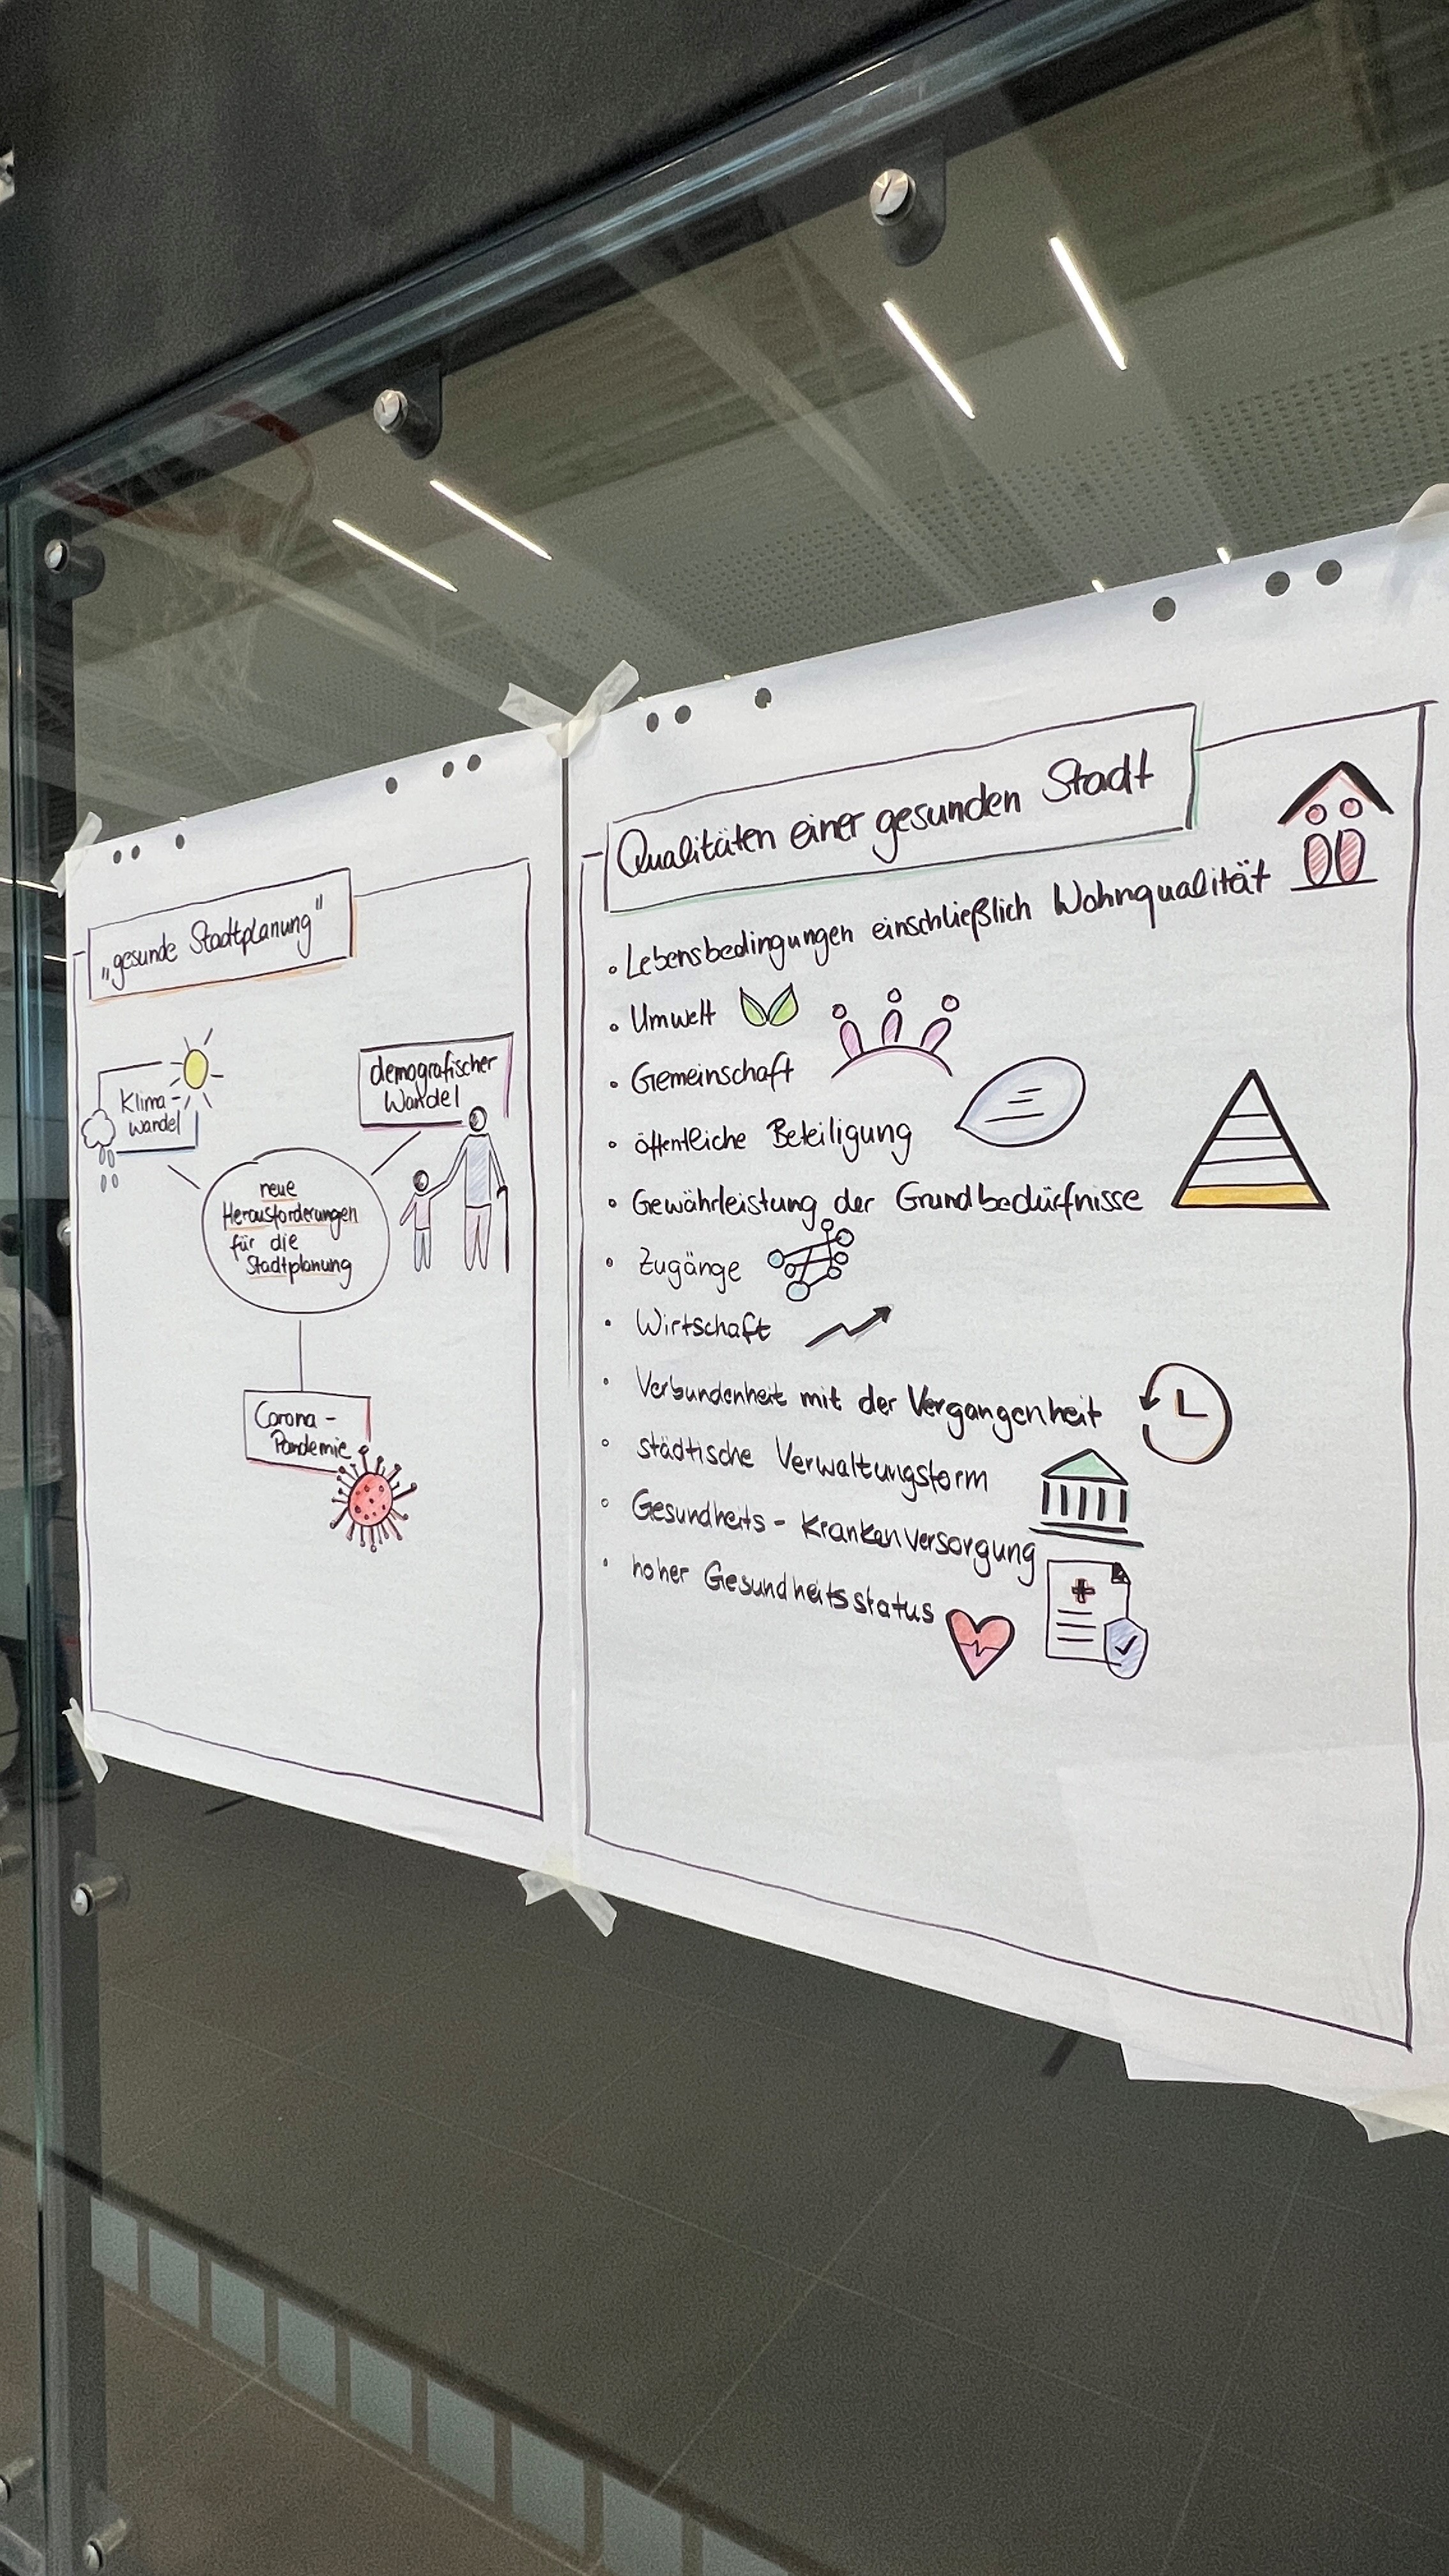 „gesunde Stadtplanung"
Klima-
wandel
demografischer
Wandel
neue
Herausforderungen
für die
Stadtplanung
Corona-
Pandemie
Qualitäten einer gesunden Stadt
• Lebensbedingungen einschließlich Wohnqualität
• Umwelt
• Gemeinschaft
• öffentliche Beteiligung
• Gewährleistung der Grundbedürfnisse
• Zugänge
• Wirtschaft
• Verbundenheit mit der Vergangenheit
• städtische Verwaltungsform
• Gesundheits- Krankenversorgung
• hoher Gesundheitsstatus